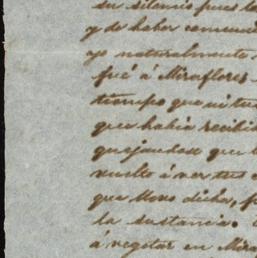 su silencio pues la
y de haber comuni
yo naturalmente
fué á Miraflores
tiempo que ni tu
que habia recibid
quejandose que l
vuelto á ver tus
que Mono dicha, p
la sustancia.
á vegetar en Mira